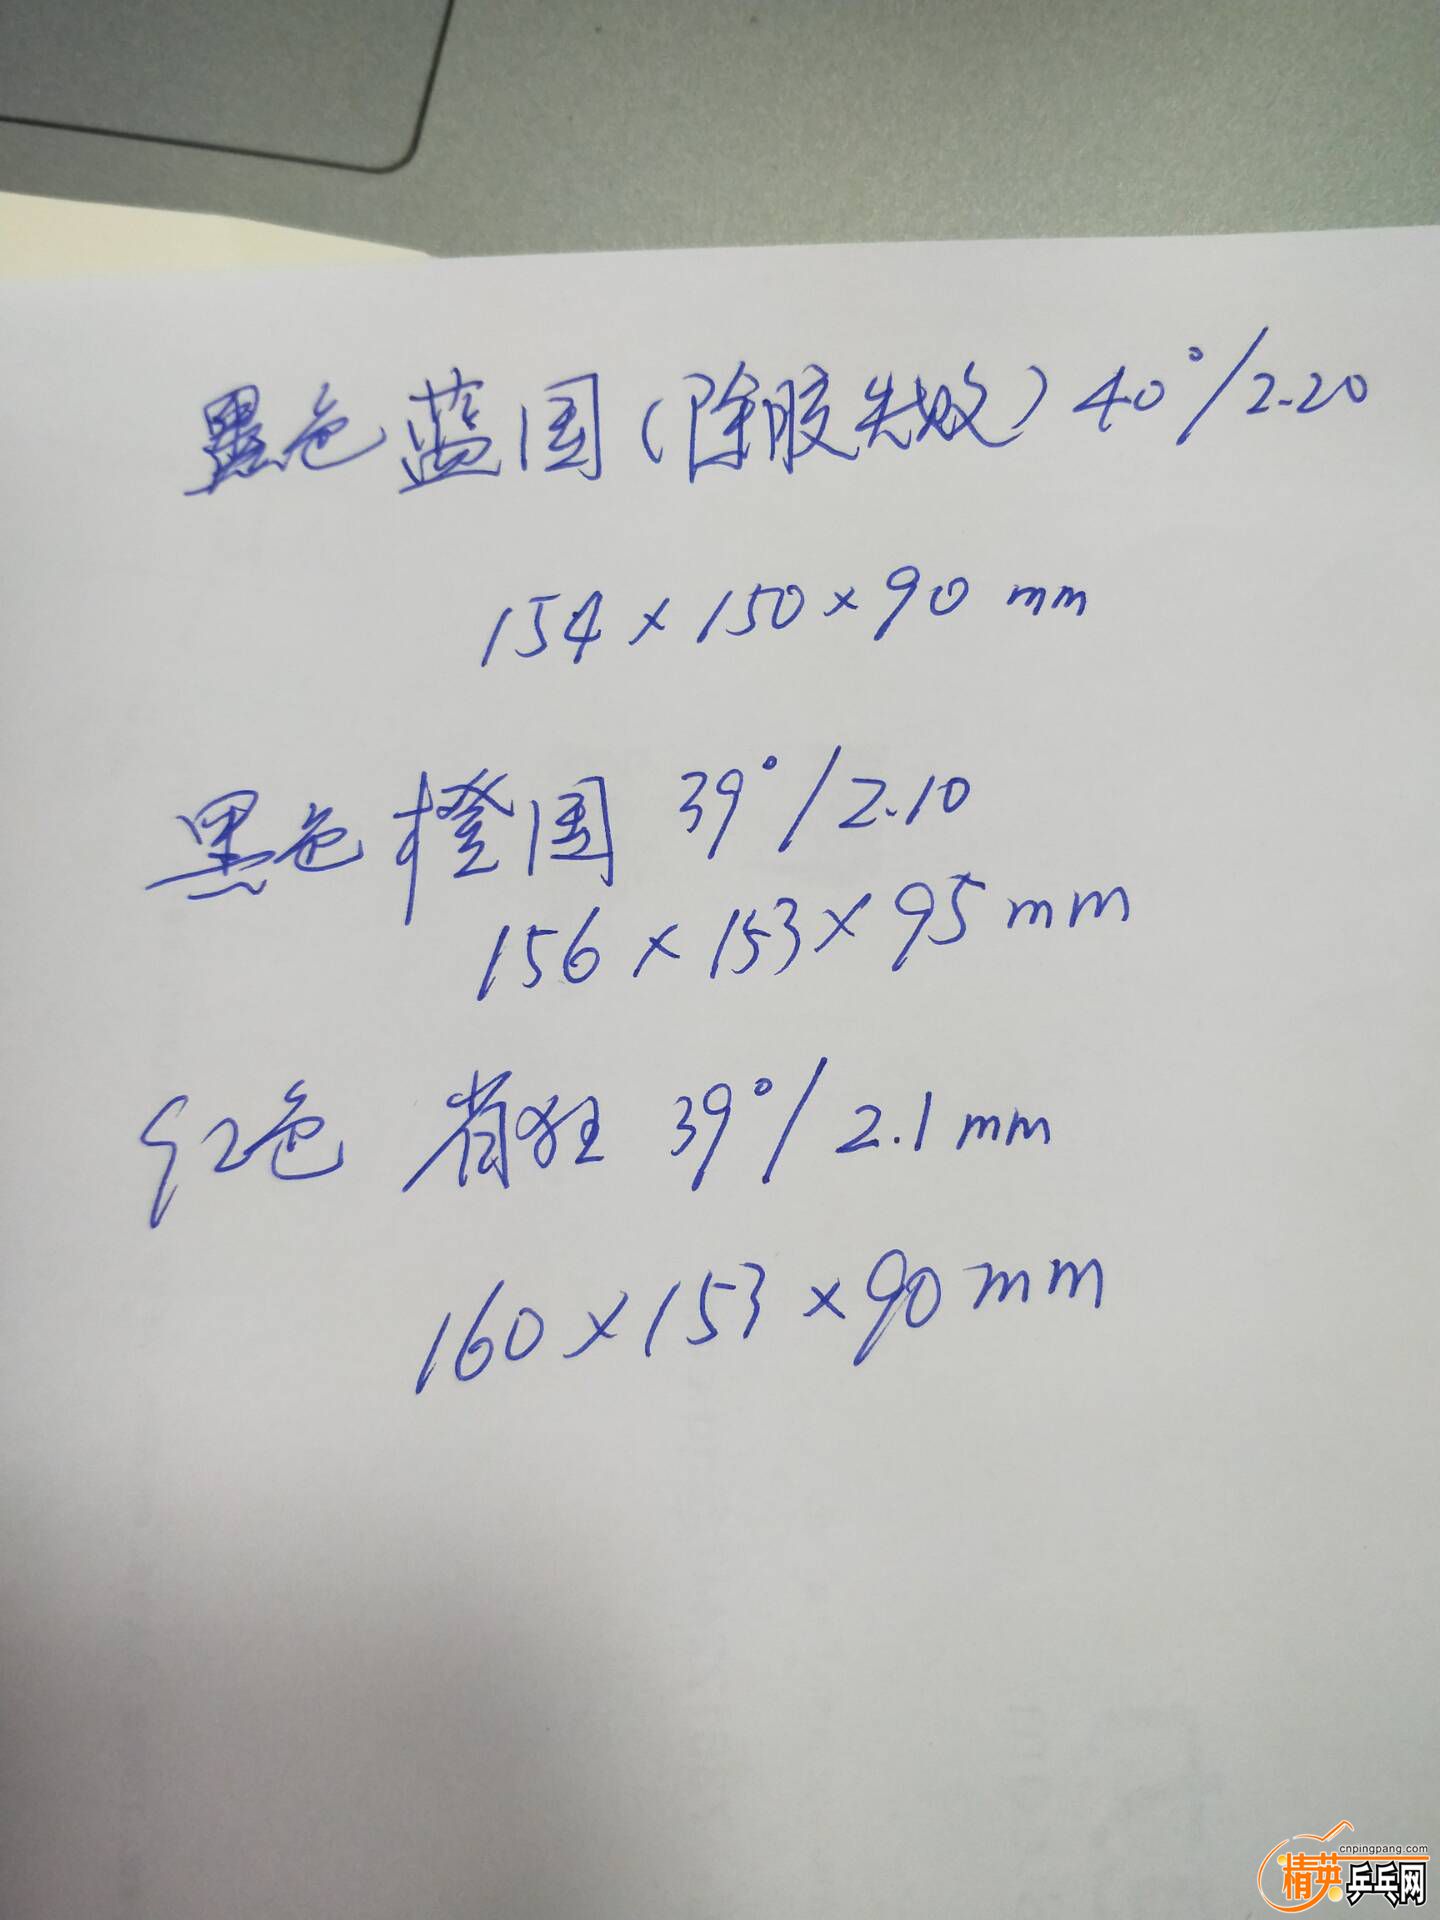 黑色 蓝国(除胶失效) 40°/2.20
154×150×90 mm
黑色 橙国 39°/2.10
156×153×95mm
红色 省狂 39°/2.1mm
160×153×90mm
cnpingpang.com
精英乒乓网